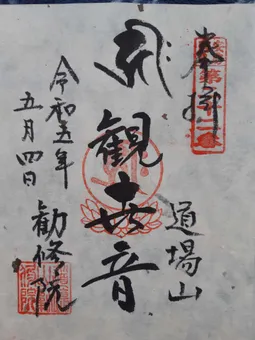 奉拝
道場山
觀世音
令和五年
五月四日
勧修院